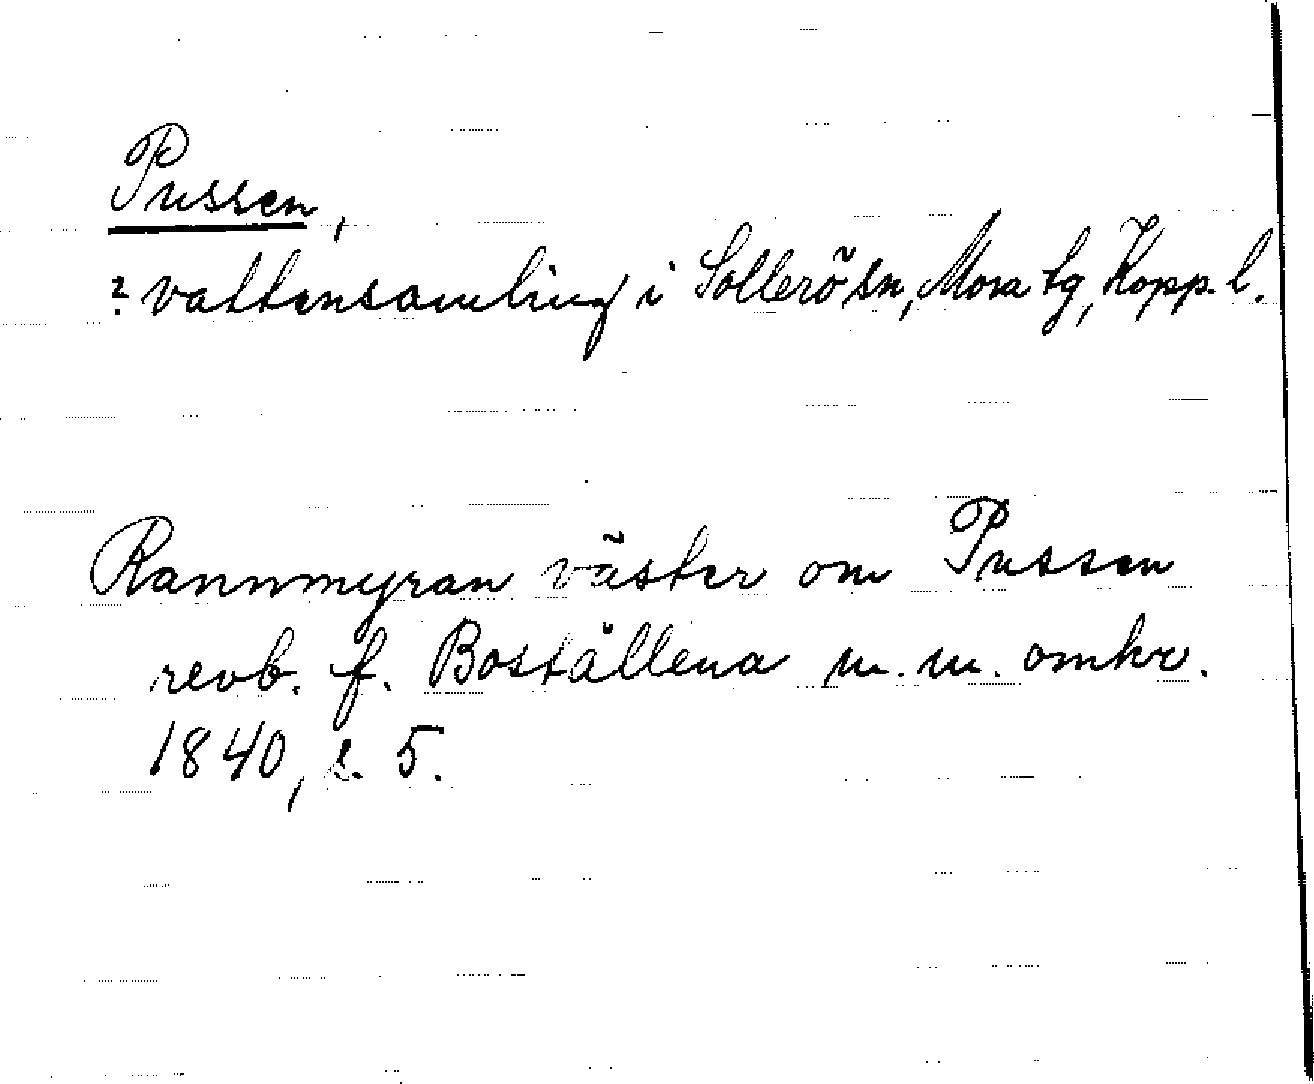 Pussen,
? vattensamling i Sollerö sn, Mora tg, Kopp. l.
Rannmyran väster om Pussen
revb. f. Boställena m. m. omkr.
1840, s. 5.